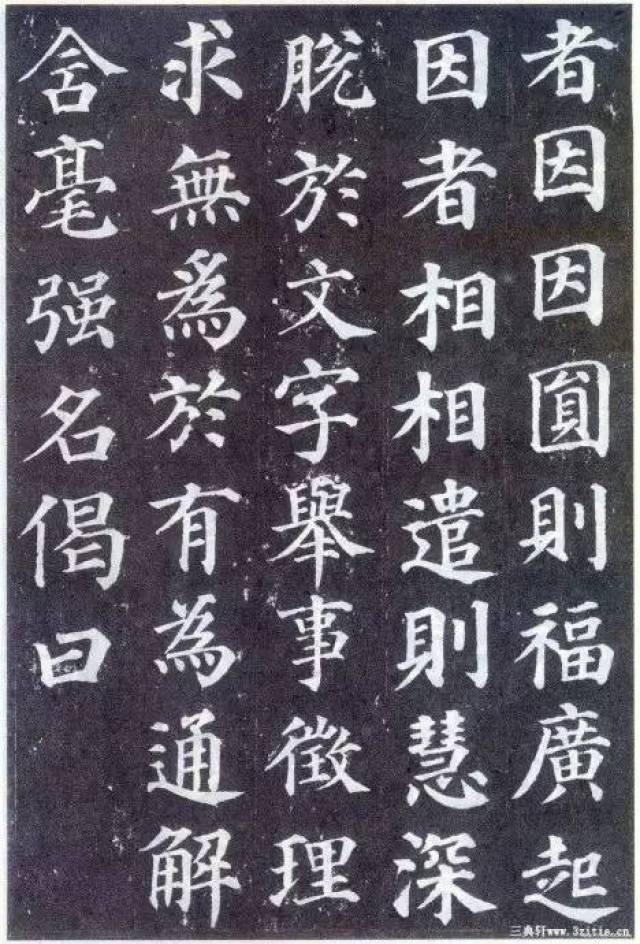 者因因圎則福廣起
因者相相遣則慧深
脱於文字舉事徵理
求無爲於有為通解
含毫强名偈曰
三典轩www.3zitie.cn